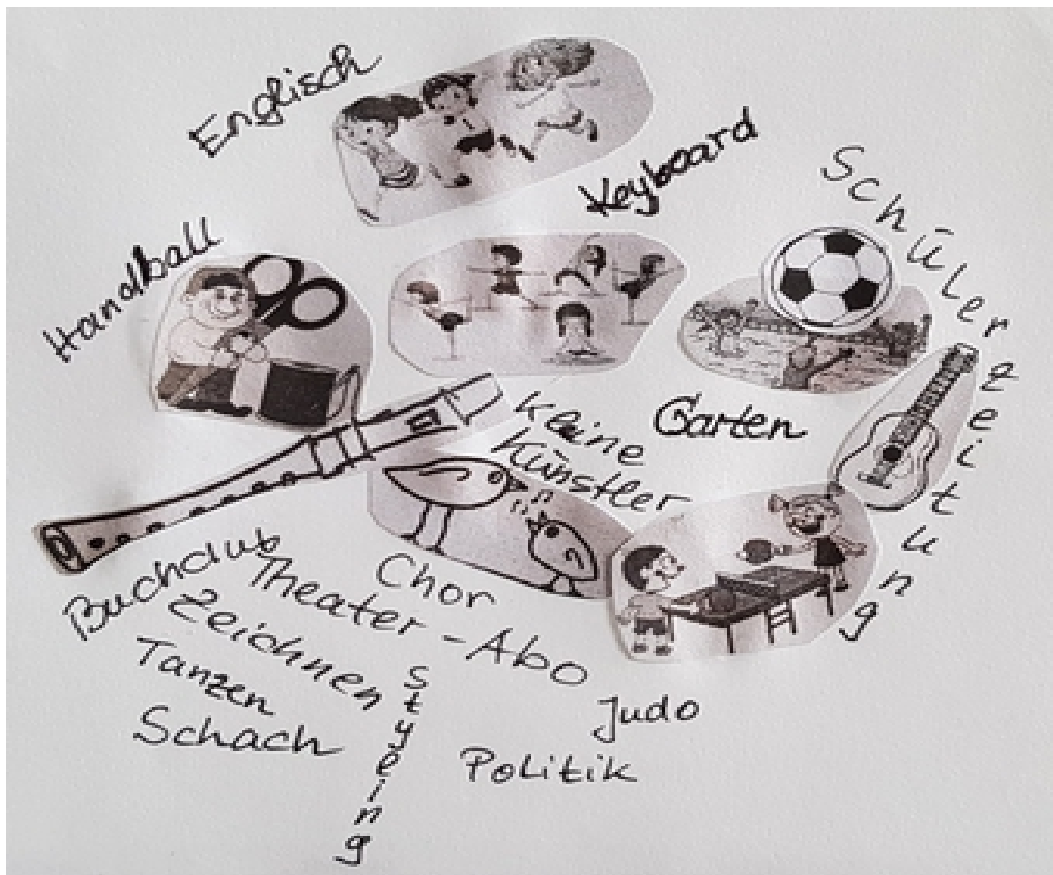 Englisch
Keyboard
Schülerzeitung
Handball
Garten
kleine
Künstler
Chor
Buchclub
Theater-Abo
Zeichnen
Tanzen
Schach
Styling
Judo
Politik